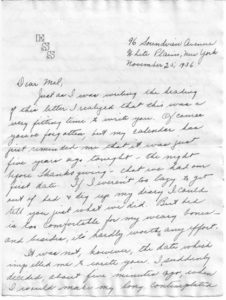 E
S
S
96 Soundview Avenue
White Plains, New York
November 25, 1936
Dear Mel,
Just as I was writing the heading
of this letter I realized that this was a
very fitting time to write you. Of course
you've forgotten, but my calendar has
just reminded me that it was just
five years ago tonight - the night
before Thanksgiving - that we had our
first date. If I weren't too lazy to get
out of bed & dig up my diary I could
tell you just what we did. But bed
is too comfortable for my weary bones -
and besides, it's hardly worth any effort.
It was not, however, the date which
impelled me to write you. I suddenly
decided, about five minutes ago, when
I would make my long contemplated